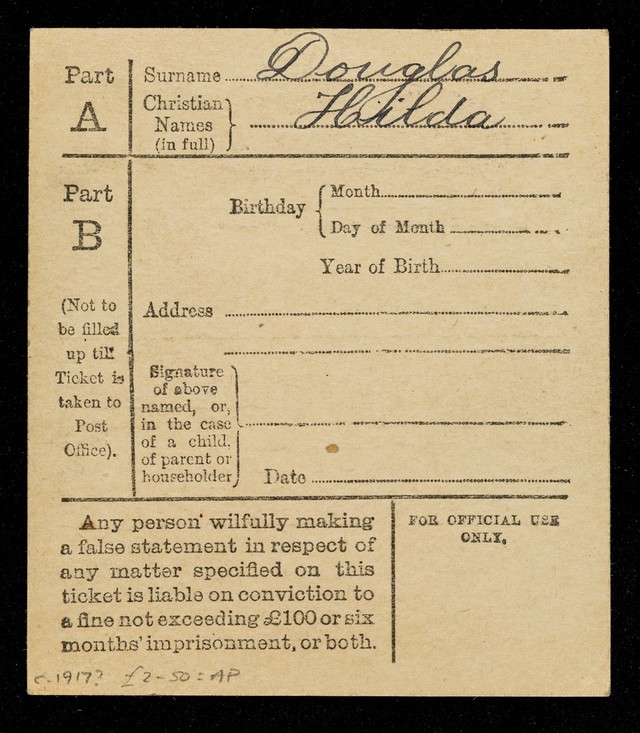 Part A
Surname Douglas
Christian Names (in full) Hilda
Part B
(Not to
be filled
up till
Ticket is
taken to
Post
Office).
Birthday
Month
Day of Month
Year of Birth
Address
Signature
of above
named, or,
in the case
of a child,
of parent or
householder
Date
Any person wilfully making
a false statement in respect of
any matter specified on this
ticket is liable on conviction to
a fine not exceeding £100 or six
months' imprisonment, or both.
FOR OFFICIAL USE
ONLY.
c.1917? £2-50=AP